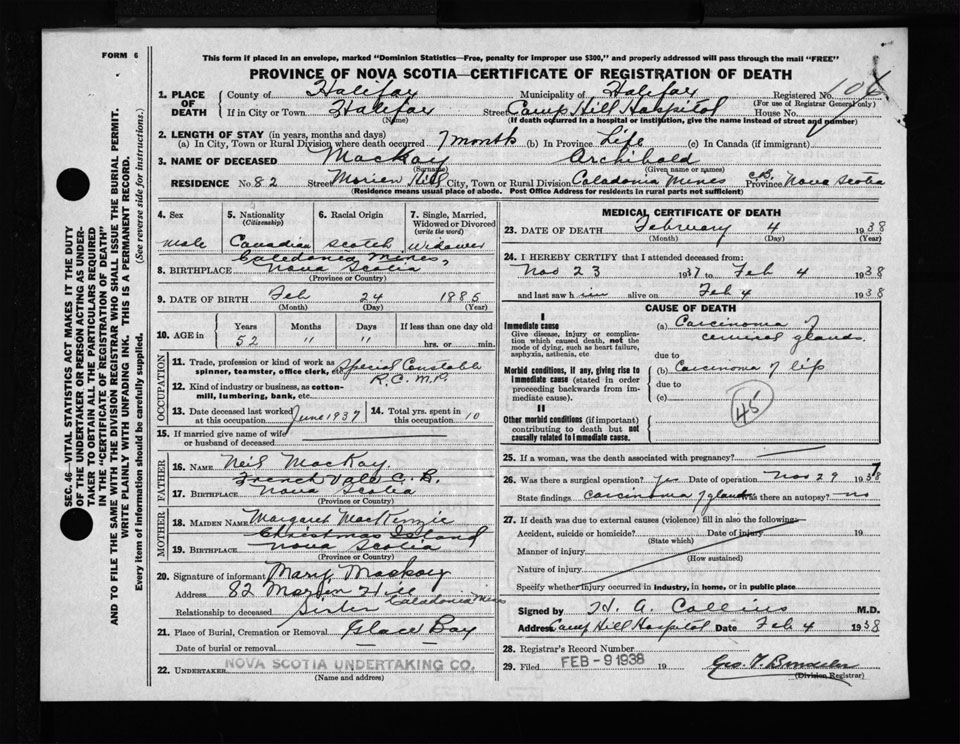 FORM 6
This form if placed in an envelope, marked "Dominion Statistics—Free, penalty for improper use $300," and properly addressed will pass through the mail "FREE"
PROVINCE OF NOVA SCOTIA—CERTIFICATE OF REGISTRATION OF DEATH
SEC. 46—VITAL STATISTICS ACT MAKES IT THE DUTY
OF THE UNDERTAKER OR PERSON ACTING AS UNDER-
TAKER TO OBTAIN ALL THE PARTICULARS REQUIRED
IN THE "CERTIFICATE OF REGISTRATION OF DEATH"
AND TO FILE THE SAME WITH THE DIVISION REGISTRAR WHO SHALL ISSUE THE BURIAL PERMIT.
WRITE PLAINLY WITH UNFADING INK. THIS IS A PERMANENT RECORD.
Every item of information should be carefully supplied. (See reverse side for instructions.)
1. PLACE OF DEATH County of Halifax Municipality of Halifax Registered No.
(For use of Registrar General only)
If in City or Town Halifax Street Camp Hill Hospital House No.
(Name) (If death occurred in a hospital or institution, give the name instead of street and number)
2. LENGTH OF STAY (in years, months and days)
(a) In City, Town or Rural Division where death occurred 7 months (b) In Province Life (c) In Canada (if immigrant)
3. NAME OF DECEASED MacKay Archibald
(Surname) (Given name or names)
RESIDENCE No. 82 Street Morien Hill City, Town or Rural Division Caledonia Mines C.B. Province Nova Scotia
(Residence means usual place of abode. Post Office Address for residents in rural parts not sufficient)
4. Sex 5. Nationality (Citizenship) 6. Racial Origin 7. Single, Married, Widowed or Divorced (write the word)
Male Canadian Scotch Widower
8. BIRTHPLACE Caledonia Mines, Nova Scotia
(Province or Country)
9. DATE OF BIRTH Feb 24 1885
(Month) (Day) (Year)
10. AGE in Years Months Days If less than one day old
52 " " hrs. or min.
OCCUPATION
11. Trade, profession or kind of work as spinner, teamster, office clerk, etc. Special Constable
R.C.M.P.
12. Kind of industry or business, as cotton-mill, lumbering, bank, etc.
13. Date deceased last worked at this occupation June 1937 14. Total yrs. spent in this occupation 10
15. If married give name of wife or husband of deceased
FATHER
16. NAME Neil MacKay
17. BIRTHPLACE French Vale C.B. Nova Scotia
(Province or Country)
MOTHER
18. MAIDEN NAME Margaret MacKenzie
19. BIRTHPLACE Christmas Island Nova Scotia
(Province or Country)
20. Signature of informant Mary MacKay
Address 82 Morien Hill Caledonia Mines
Relationship to deceased Sister
21. Place of Burial, Cremation or Removal Glace Bay
Date of burial or removal
22. UNDERTAKER NOVA SCOTIA UNDERTAKING CO.
(Name and address)
MEDICAL CERTIFICATE OF DEATH
23. DATE OF DEATH February 4 1938
(Month) (Day) (Year)
24. I HEREBY CERTIFY that I attended deceased from:
Nov 23 1937 to Feb 4 1938
and last saw him alive on Feb 4 1938
CAUSE OF DEATH
I
Immediate cause
Give disease, injury or complication which caused death, not the mode of dying, such as heart failure, asphyxia, asthenia, etc
(a) Carcinoma of cervical glands
due to
Morbid conditions, if any, giving rise to immediate cause (stated in order proceeding backwards from immediate cause).
(b) Carcinoma of lip
due to
(c)
45
II
Other morbid conditions (if important) contributing to death but not causally related to immediate cause.
25. If a woman, was the death associated with pregnancy?
26. Was there a surgical operation? yes Date of operation Nov 29 1937
State findings Carcinoma of glands Was there an autopsy? no
27. If death was due to external causes (violence) fill in also the following:
Accident, suicide or homicide? Date of injury 19
(State which)
Manner of injury
(How sustained)
Nature of injury
Specify whether injury occurred in industry, in home, or in public place
Signed by H. A. Collins M.D.
Address Camp Hill Hospital Date Feb 4 1938
28. Registrar's Record Number
29. Filed FEB - 9 1938 19
(Division Registrar)